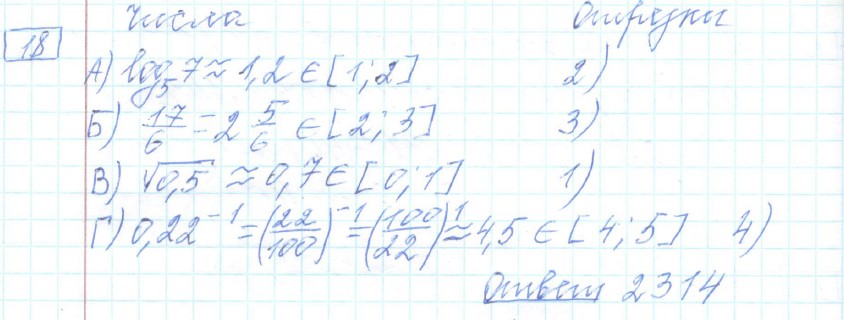 Числа Отрезки
18
А) log₅7 ≈ 1,2 ∈ [1; 2] 2)
Б) 17/6 = 2 5/6 ∈ [2; 3] 3)
В) √0,5 ≈ 0,7 ∈ [0; 1] 1)
Г) 0,22⁻¹ = (22/100)⁻¹ = (100/22)¹ ≈ 4,5 ∈ [4; 5] 4)
Ответ 2314